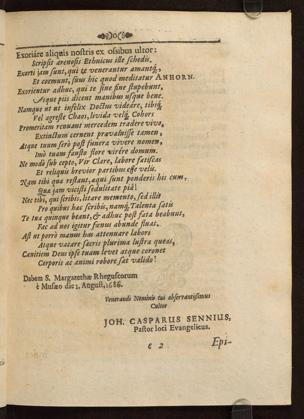 Exoriare aliquis nostris ex ossibus ultor:
Scripsit arenosis Ethnicus ille schediis,
Exorti jam sunt, qui te venerantur amantq́,
Et coëmunt, sint hic quod meditatur ANHORN.
Exorientur adhuc, qui te sine fine stupebunt,
Atque piis dicent manibus usque bene.
Namque ut ut infelix Doctus videare, tibiq́
Vel agreste Chaos, livida velq́ Cohors
Promeritam renuant mercedem tradere vivo,
Extinctum cernent prævaluisse tamen,
Atque tuum serò post funera vivere nomen,
Imò tuum fausto flore virére domum.
Ne modò sub cepto, Vir Clare, labore fatiscas
Et reliquis brevior partibus esse velis.
Nam tibi quæ restant, aqui sunt ponderis his cum,
Quæ jam vicisti sedulitate piâ!
Nec tibi, qui scribis, litare memento, sed illis
Pro quibus hæc scribis, namq́ Talenta satis
Te tua quinque beant, & adhuc post fata beabunt,
Fac ad nos igitur fœnus abunde fluat.
Ast ut porrò manus hæc attenuare labori
Atque vacare sacris plurima lustra queas,
Cœnitium Deus ipse tuum levet atque coronet
Corporis ac animi robore sat valido!
Dabam S. Margarethæ Rheguscorum
è Musæo die 3. August. 1686.
Venerandi Nominis tui observantissimus
Cultor
JOH. CASPARUS SENNIUS,
Pastor loci Evangelicus.
e 2 Epi-